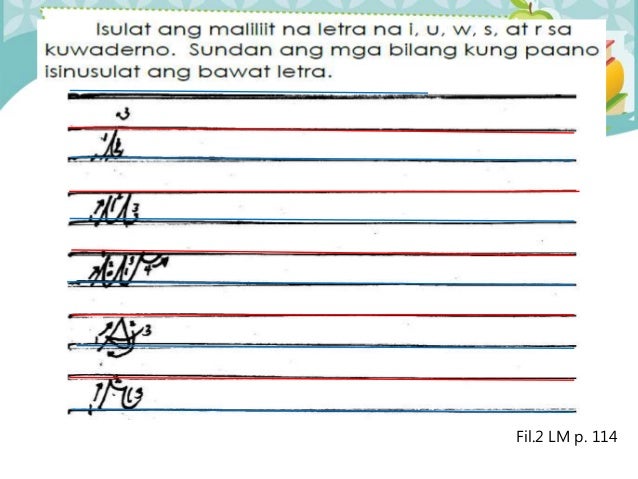 Isulat ang maliliit na letra na i, u, w, s, at r sa
kuwaderno. Sundan ang mga bilang kung paano
isinusulat ang bawat letra.
3
i
u
w
s
r
Fil.2 LM p. 114